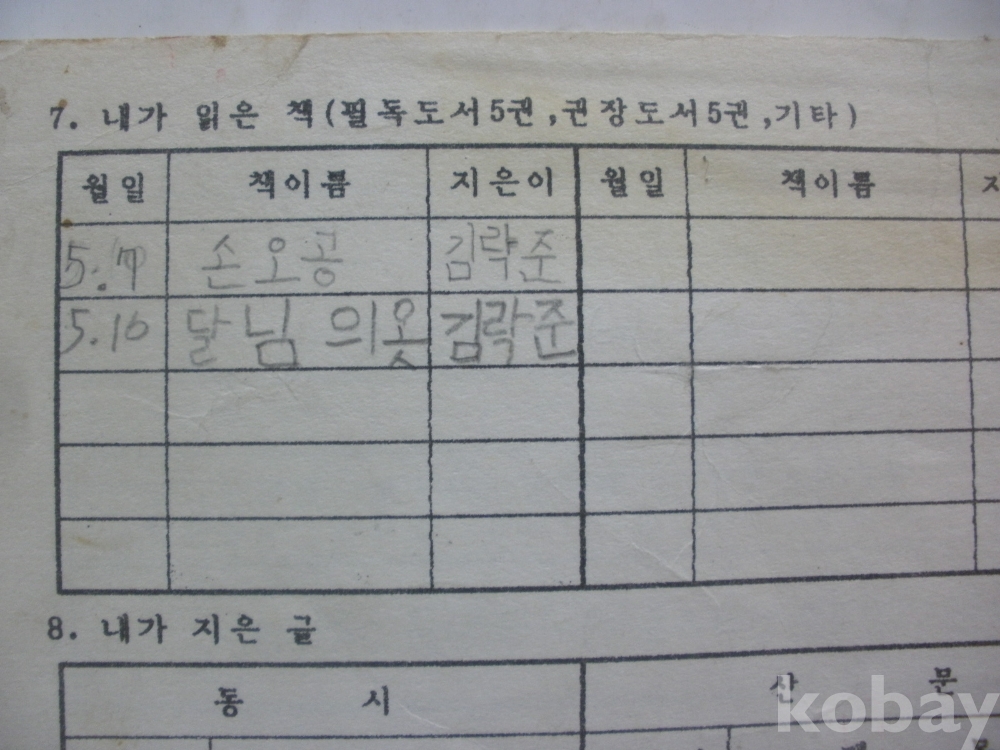 7. 내가 읽은 책(필독도서5권,권장도서5권,기타)
월일 책이름 지은이 월일 책이름
손오공 김락준
5.10 달님의옷 김락준
8. 내가 지은 글
동시 산문
kobay